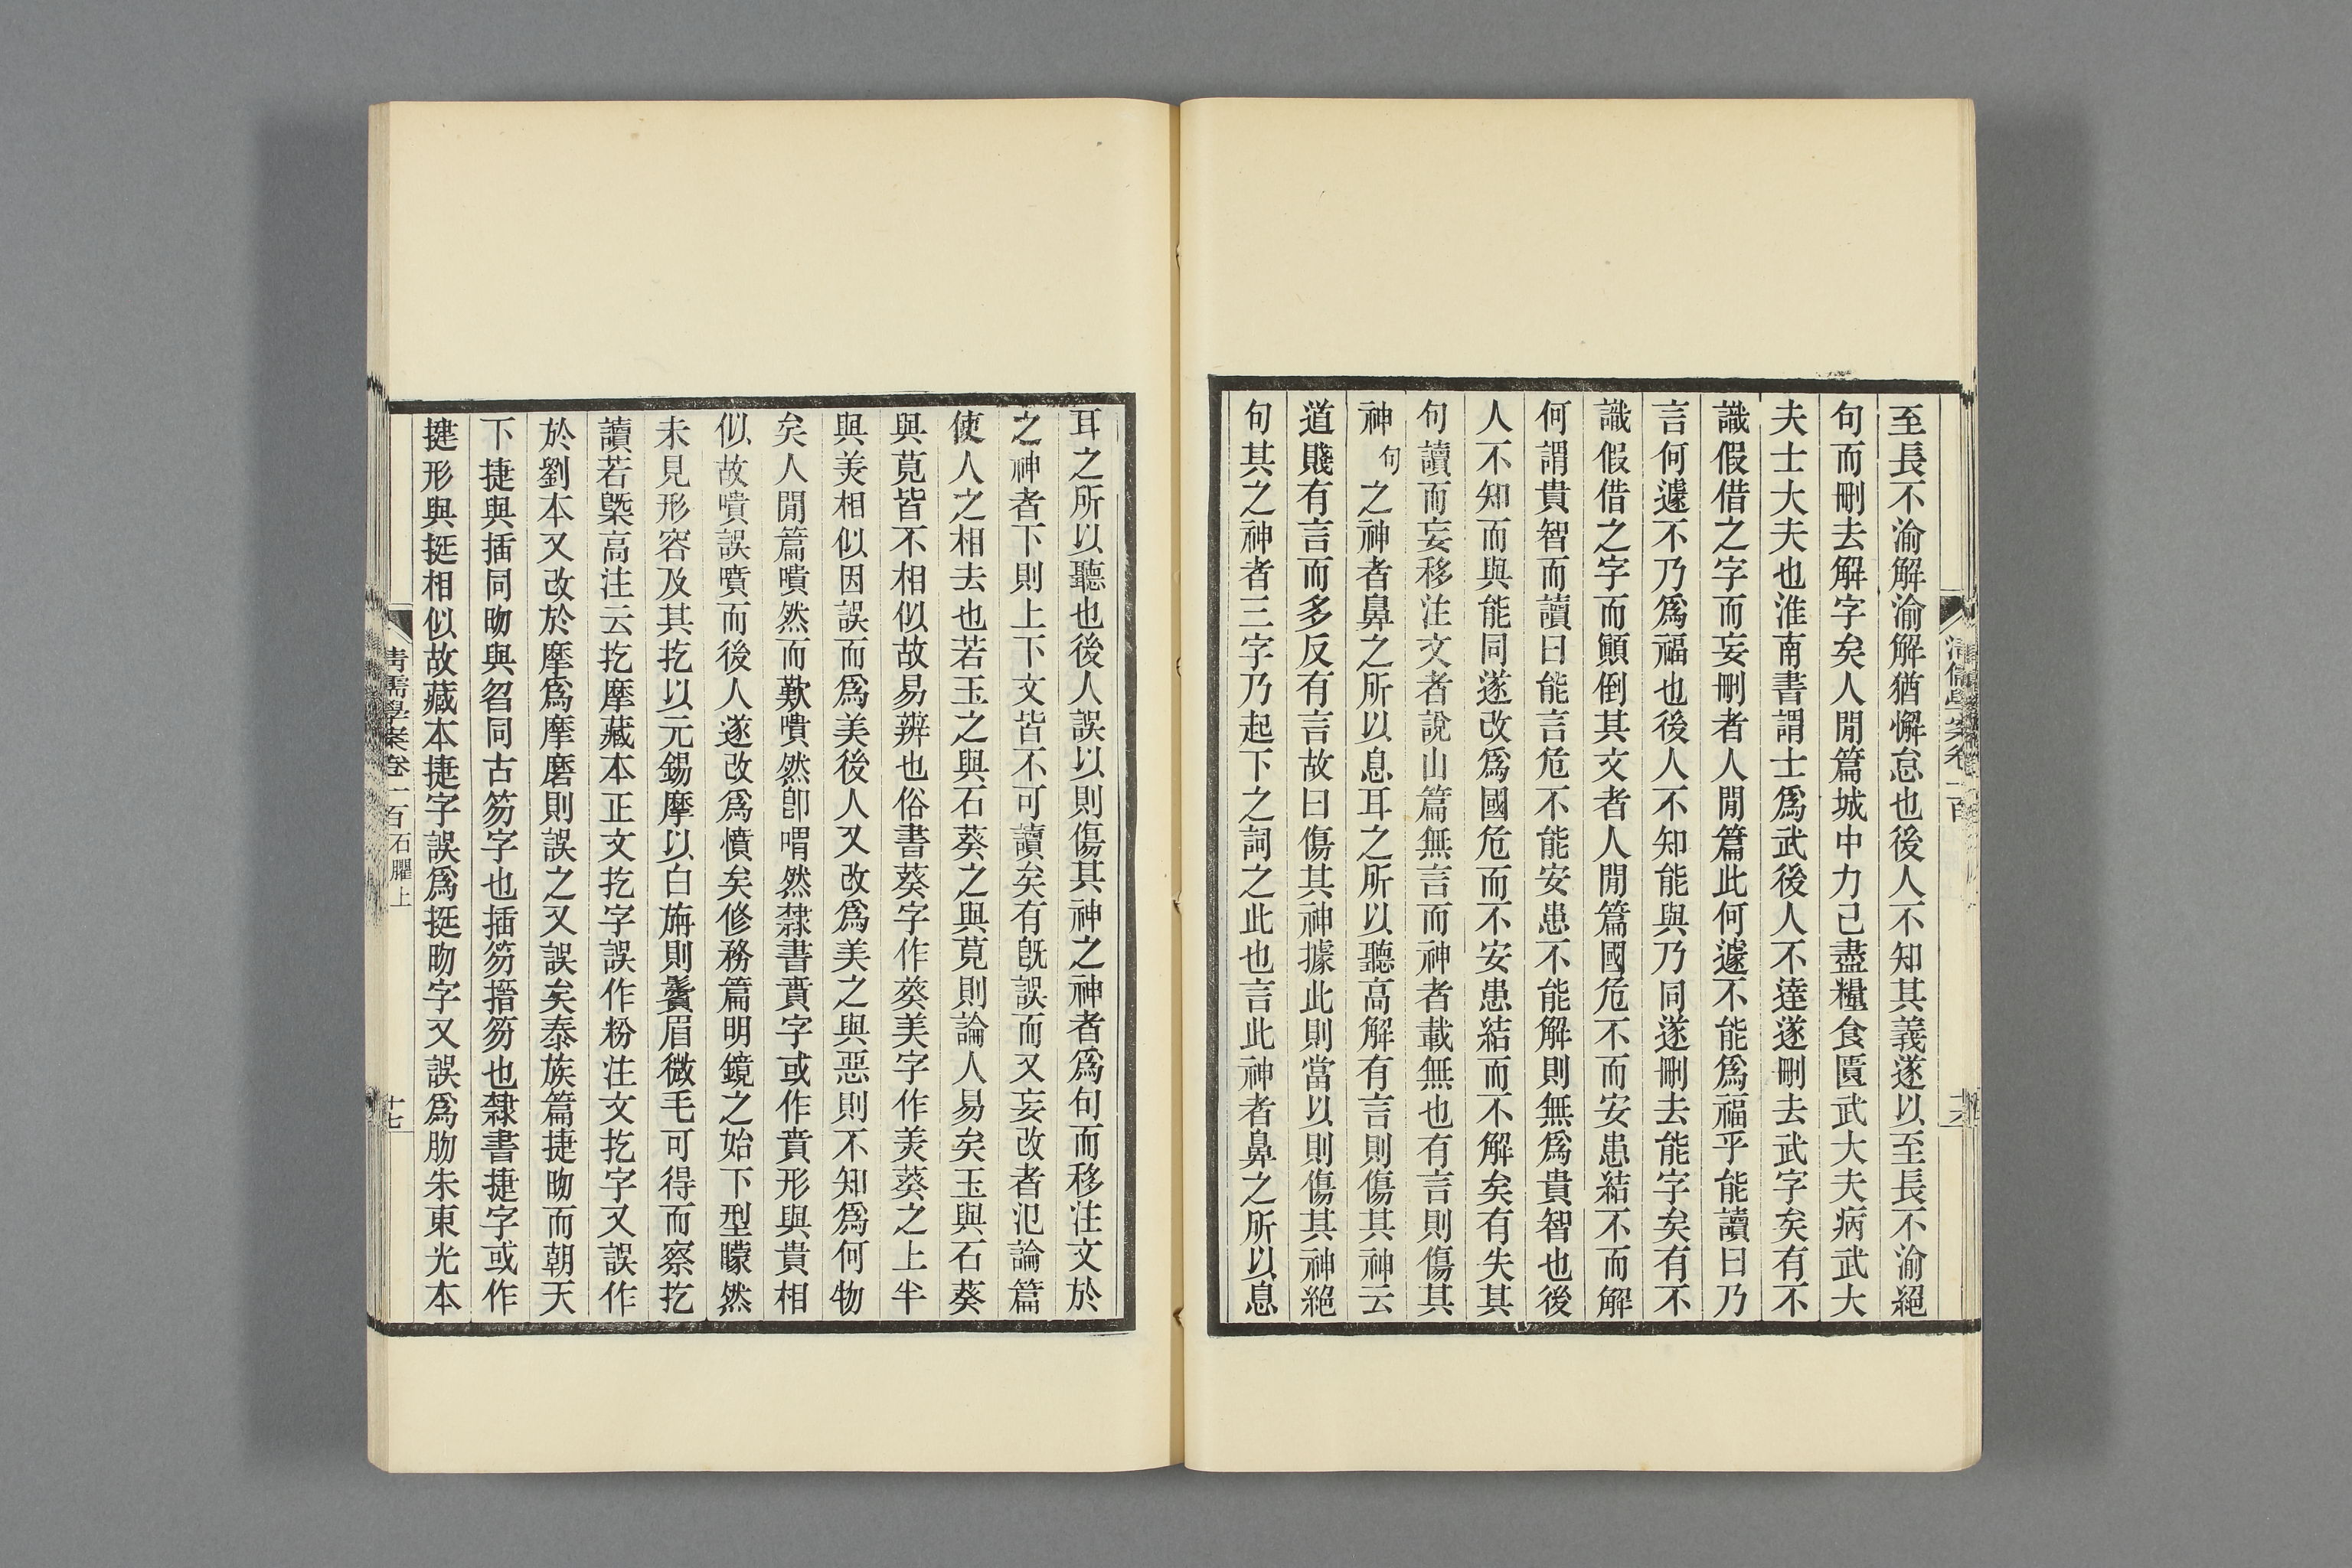 至長不渝解渝解猶懈怠也後人不知其義遂以至長不渝絕
句而刪去解字矣人閒篇城中力已盡糧食匱武大夫病武大
夫士大夫也淮南書謂士爲武後人不達遂刪去武字矣有不
識假借之字而妄刪者人閒篇此何遽不能爲福乎能讀曰乃
言何遽不乃爲福也後人不知能與乃同遂刪去能字矣有不
識假借之字而顚倒其文者人閒篇國危不而安患結不而解
何謂貴智而讀曰能言危不能安患不能解則無爲貴智也後
人不知而與能同遂改爲國危而不安患結而不解矣有失其
句讀而妄移注文者說山篇無言而神者載無也有言則傷其
神句之神者鼻之所以息耳之所以聽高解有言則傷其神云
道賤有言而多反有言故曰傷其神據此則當以則傷其神絕
句其之神者三字乃起下之詞之此也言此神者鼻之所以息
清儒學案卷一百
十六
耳之所以聽也後人誤以則傷其神之神者爲句而移注文於
之神者下則上下文皆不可讀矣有旣誤而又妄改者氾論篇
使人之相去也若玉之與石葵之與莧則論人易矣玉與石葵
與莧皆不相似故易辨也俗書葵字作葵美字作羙葵之上半
與羙相似因誤而爲美後人又改爲美之與惡則不知爲何物
矣人閒篇嘳然而歎嘳然卽喟然隸書賁字或作賁形與貴相
似故嘳誤噴而後人遂改爲憤矣修務篇明鏡之始下型矇然
未見形容及其扢以元錫摩以白旃則鬢眉微毛可得而察扢
讀若槩高注云扢摩藏本正文扢字誤作粉注文扢字又誤作
於劉本又改於摩爲摩磨則誤之又誤矣泰族篇捷昒而朝天
下捷與插同昒與曶同古笏字也插笏搢笏也隸書捷字或作
揵形與挺相似故藏本捷字誤爲挺昒字又誤爲肳朱東光本
清儒學案卷一百石臞上
十七